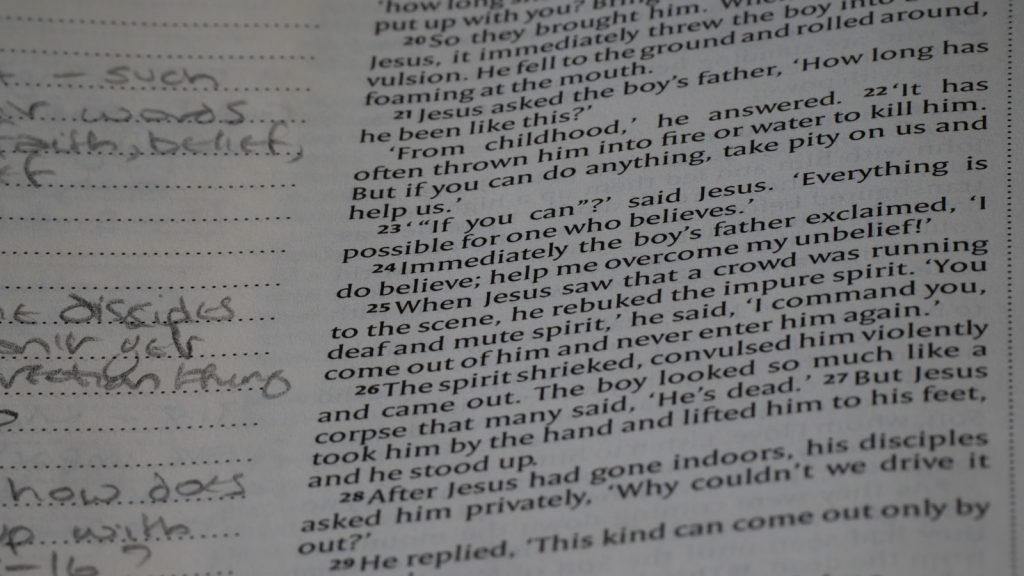 – such
words
faith, belief,
disciples
yet
thing
how does
with
-16?
'how long
put up with you? Bring
20 So they brought him. When
Jesus, it immediately threw the boy into a
vulsion. He fell to the ground and rolled around,
foaming at the mouth.
21 Jesus asked the boy's father, 'How long has
he been like this?'
'From childhood,' he answered. 22 'It has
often thrown him into fire or water to kill him.
But if you can do anything, take pity on us and
help us.'
23 ' "If you can"?' said Jesus. 'Everything is
possible for one who believes.'
24 Immediately the boy's father exclaimed, 'I
do believe; help me overcome my unbelief!'
25 When Jesus saw that a crowd was running
to the scene, he rebuked the impure spirit. 'You
deaf and mute spirit,' he said, 'I command you,
come out of him and never enter him again.'
26 The spirit shrieked, convulsed him violently
and came out. The boy looked so much like a
corpse that many said, 'He's dead.' 27 But Jesus
took him by the hand and lifted him to his feet,
and he stood up.
28 After Jesus had gone indoors, his disciples
asked him privately, 'Why couldn't we drive it
out?'
29 He replied, 'This kind can come out only by